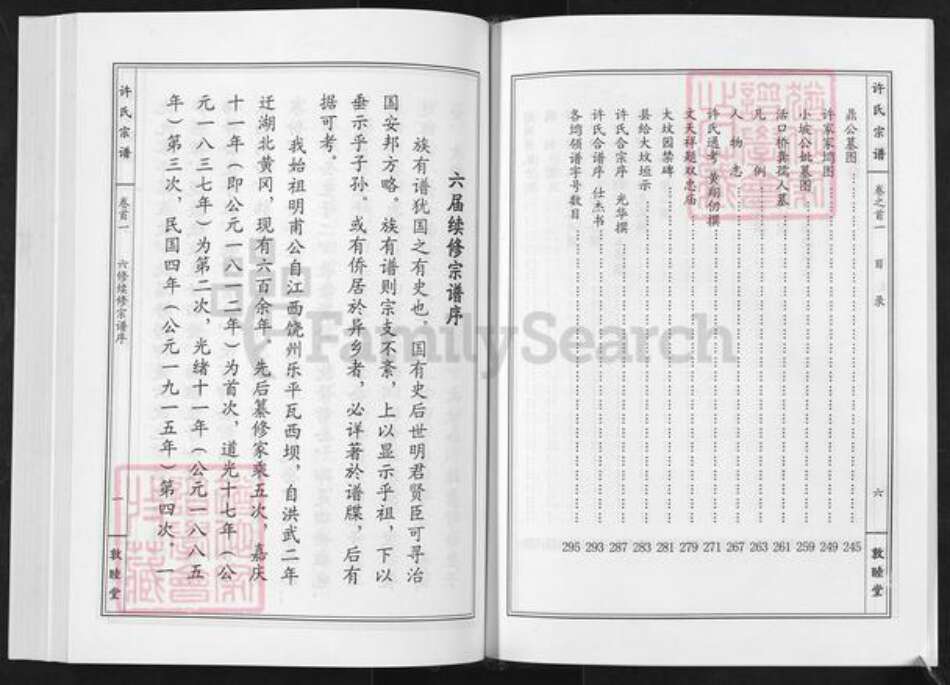 许氏宗谱
卷之首一
目录
六
敦睦堂
鼎公墓图 245
许家寨塆图 249
小坡公妣墓图 259
活口桥龚孺人墓 261
凡例 263
人物志 267
许氏通考 黄翔仞撰 271
文天祥题双忠庙 279
大坟园禁碑 281
县给大坟垣示 283
许氏合宗序 光华撰 287
许氏合谱序 仕杰书 293
各塆领谱字号数目 295
六届续修宗谱序
族有谱犹国之有史也。国有史后世明君贤臣可寻治
国安邦方略。族有谱则宗支不紊,上以显示乎祖,下以
垂示乎子孙。或有侨居於异乡者,必详著於谱牒,后有
据可考。
我始祖明甫公自江西饶州乐平瓦西坝,自洪武二年
迁湖北黄冈,现有六百余年。先后纂修家乘五次,嘉庆
十一年(即公元一八一二年)为首次,道光十七年(公
元一八三七年)为第二次,光绪十一年(公元一八八五
年)第三次,民国四年(公元一九一五年)第四次,一
许氏宗谱
卷首一
六修续修宗谱序
一
敦睦堂
FamilySearch